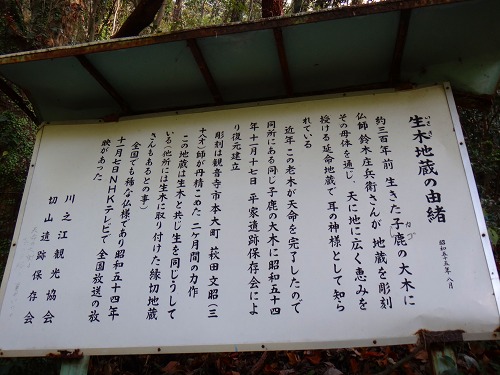 生木地蔵の由緒
いきき
昭和五十五年八月
約三百年前 生きた子鹿の大木に
かご
仏師 鈴木庄兵衛さんが 地蔵を彫刻
その母体を通じ、天に地に広く恵みを
授ける延命地蔵で 耳の神様として知ら
れている
近年 この老木が天命を完了したので
同所にある同じ子鹿の大木に昭和五十四
年十二月十七日 平家遺跡保存会によ
り復元建立
彫刻は観音寺市本大町 萩田文昭(三
十八才)師が丹精こめた 二ケ月間の力作
この地蔵は生木と共じ生を同じうして
いる(他所には生木に取り付けた縁切地蔵
さんもあるとの事)
全国でも稀な仏様であり昭和五十四年
十一月七日NHKテレビで 全国放送の放
映があった
川之江観光協会
切山遺跡保存会